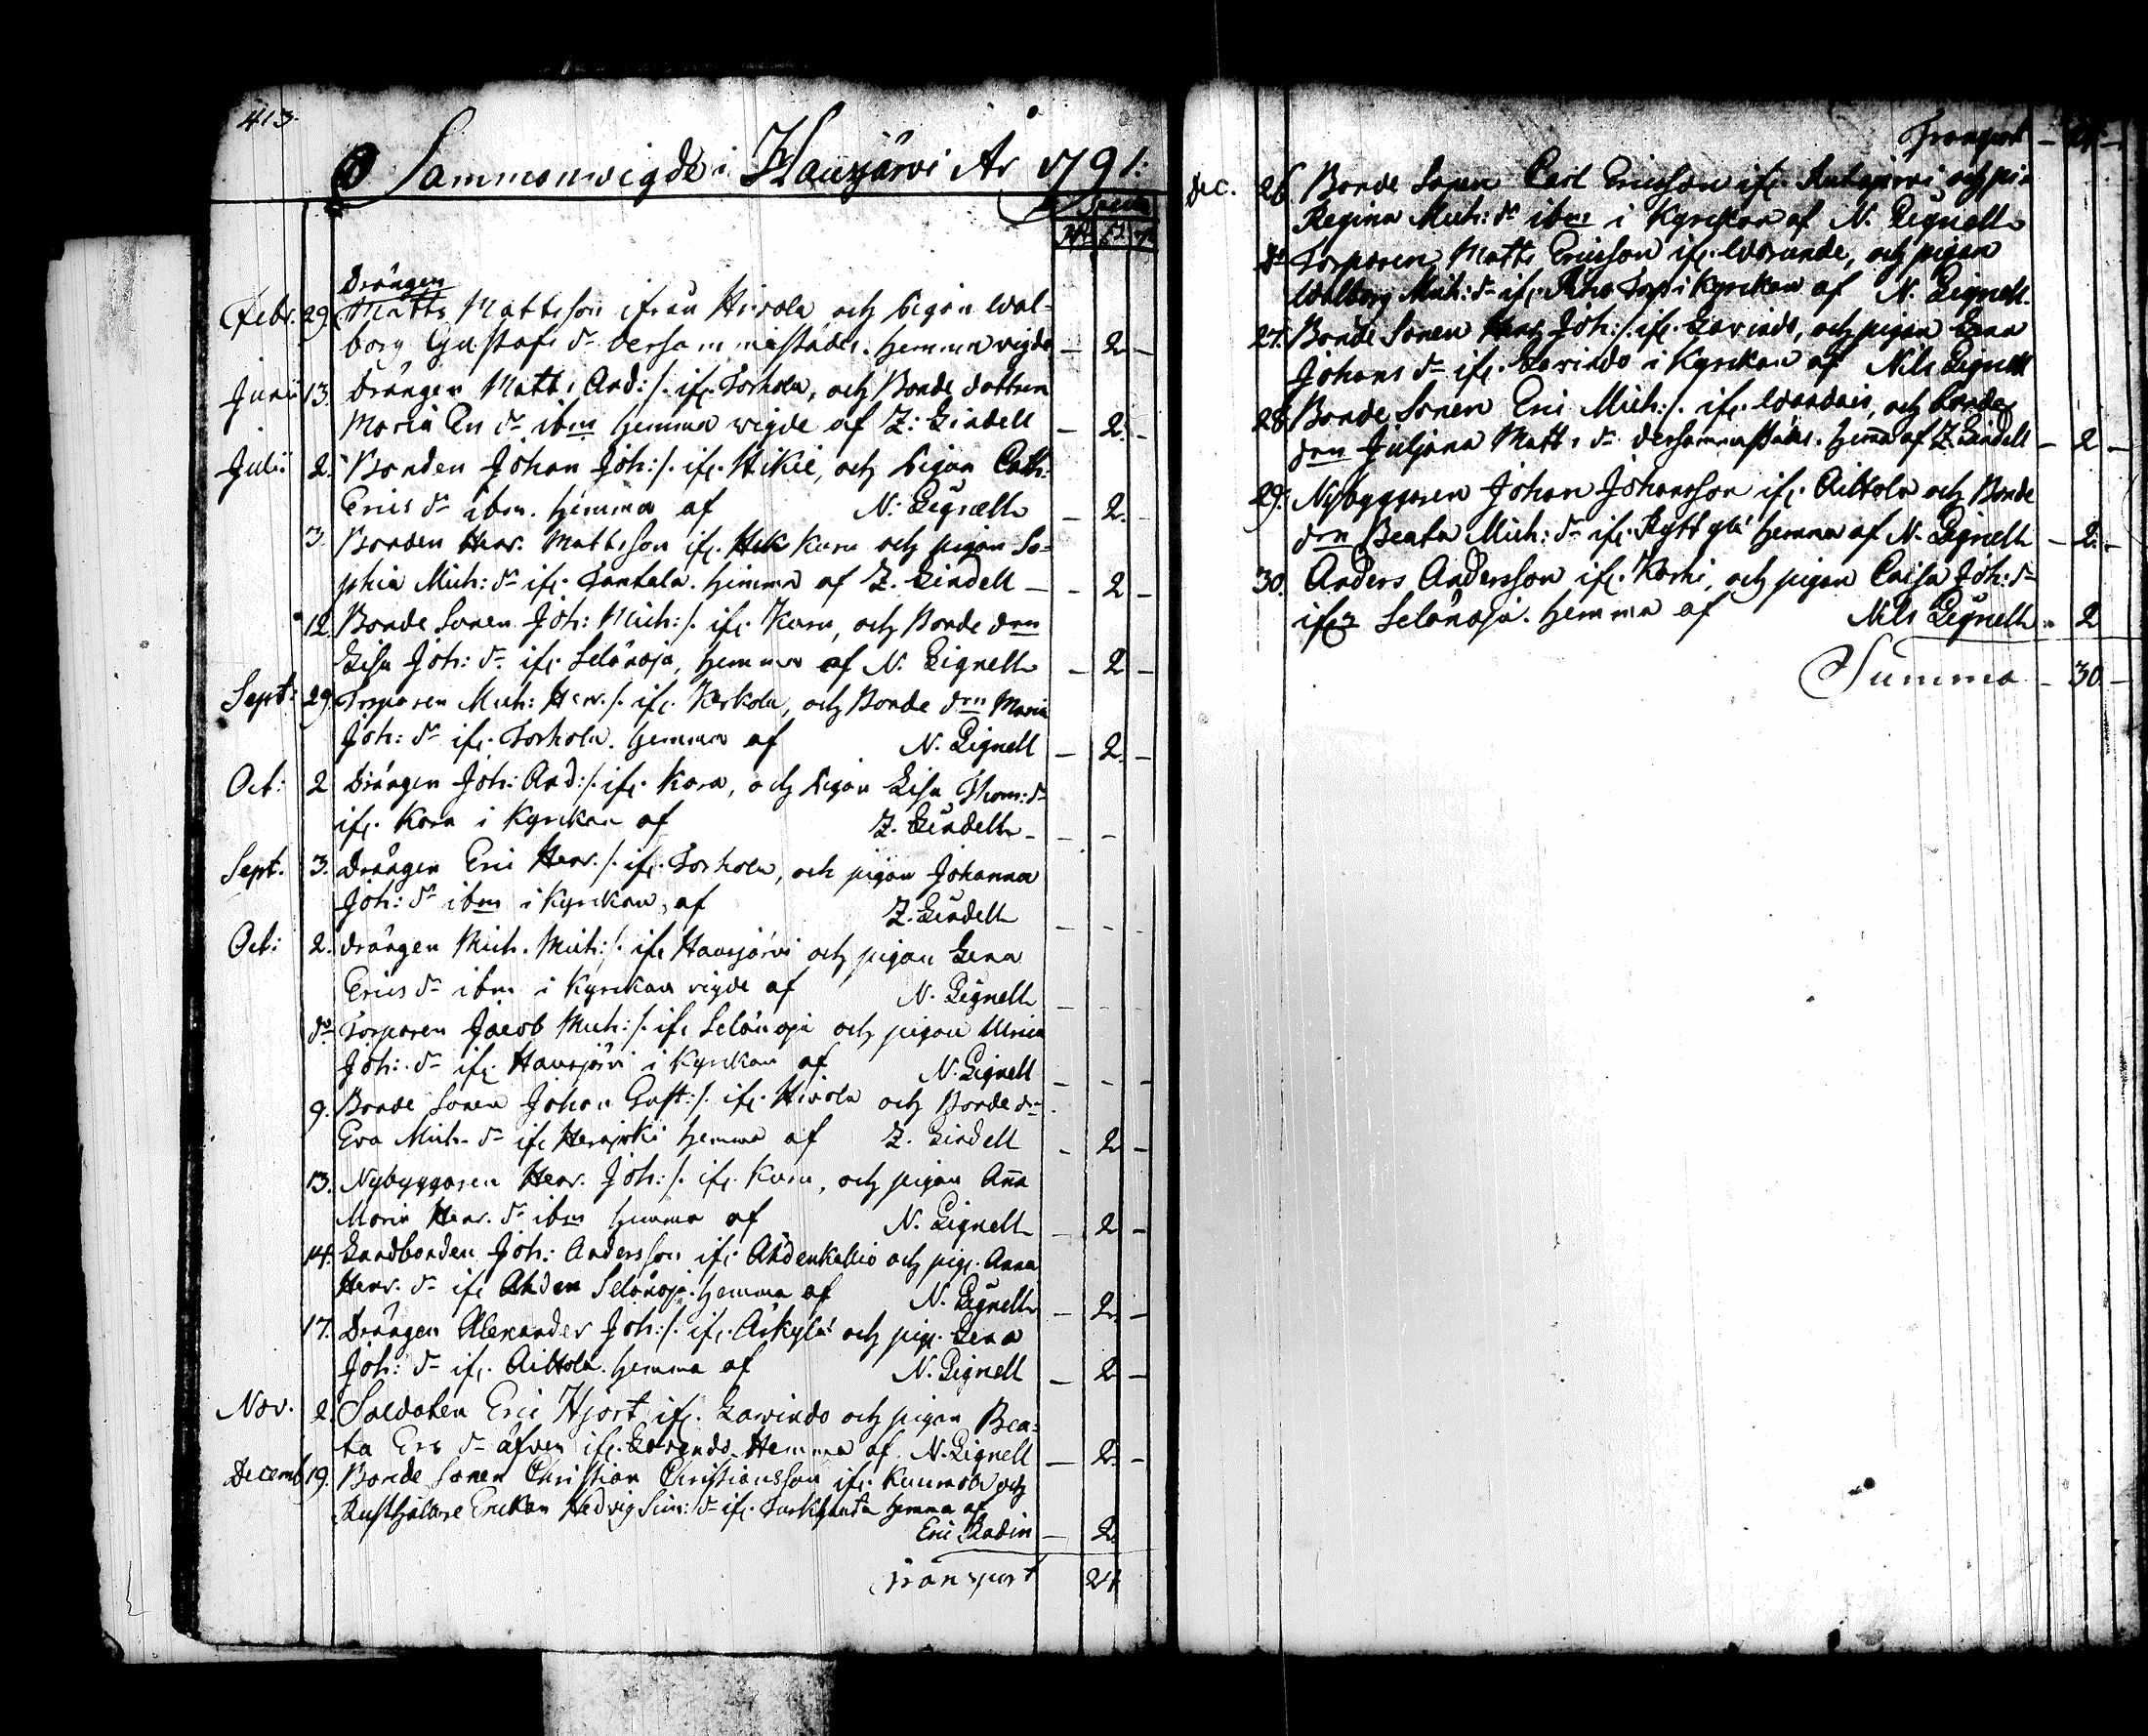 413.
Sammanwigde i Hausjärvi År 1791:
Specie
Drängen
Febr. 29. Matts Mattsson ifrån Hirvola och Pigan Wal-
borg Gustafs dr dersammastädes. hemma vigde — 2 —
Junii 13. Drängen Matts And:s. ifr. Torhola, och Bonde dottren
Maria Er dr ibm hemma vigde af Z: Lindell — 2. —
Julii 2. Bonden Johan Joh:s. ifr. Hikiè, och Pigan Cath:
Erics dr ibm. hemma af N. Lignell — 2. —
3. Bonden Henr. Mattsson ifr. Kara och pigan So-
phia Mich: dr ifr. Tantala. hemma af Z. Lindell — 2 —
12. Bonde Sonen Joh: Mich:s. ifr. Kara, och Bonde drn
Lisa Joh: dr ifr. Selänoja, hemma af N. Lignell — 2 —
Sept: 29. Torparen Mich: Henr.s. ifr. Kerkola, och Bonde drn Maria
Joh: dr ifr. Torhola. hemma af N. Lignell — 2. —
Oct: 2 Drängen Joh: And:s. ifr. Kara, och Pigan Lisa Thom: dr
ifr. Kara i Kyrckan af Z. Lindell — — —
Sept. 3. Drängen Eric Henr.s. ifr. Torhola, och pigan Johanna
Joh: dr ibm i Kyrckan af Z. Lindell — — —
Oct: 2. drängen Mich. Mich:s. ifr Hausjärvi och pigan Lena
Erics dr ibm i Kyrckan vigde af N. Lignell — — —
do Torparen Jacob Mich:s. ifr Selänoja och pigan Ulrica
Joh: dr ifr. Hausjärvi i Kyrckan af N. Lignell — — —
9. Bonde Sonen Johan Gust:s. ifr. Hirvola och Bonde dr
Eva Mich. dr ifr Herajoki hemma af Z. Lindell — 2 —
13. Nybyggaren Henr. Joh:s. ifr. Kara, och pigan Anna
Maria Henr. dr ibm hemma af N. Lignell — 2 —
14. Landbonden Joh: Andersson ifr. Ahdenkallio och pig. Anna
Henr. dr ifr Ahden Selänoja. hemma af N. Lignell — 2 —
17. Drängen Alexander Joh:s. ifr. Arkylä och pig. Lena
Joh: dr ifr. Aittola. hemma af N. Lignell — 2 —
Nov. 2. Soldaten Eric Hjort ifr. Lavindo och pigan Bea-
ta Ers dr äfven ifr. Lavindo. Hemma af N. Lignell — 2 —
Decemb. 19. Bonde Sonen Christian Christiansson ifr. Kuumola och
Rusthållare Enckan Hedvig Sim: dr ifr. Turkhauta hemma af
Eric Ladin — 2.
Transport 24
Transport — 24 —
Dec. 26 Bonde Sonen Carl Ericsson ifr. Hausjärvi och pi-
Regina Mich: dr ibm i Kyrckan af N. Lignell
do Torparen Matts Ericsson ifr. och pigan
Walborg Mich: dr ifr. Torp i Kyrckan af N. Lignell.
27. Bonde Sonen Joh:s. ifr. Lavindo, och pigan Lena
Johans dr ifr. Lavindo i Kyrckan af Nils Lignell
28. Bonde Sonen Eric Mich:s. ifr. och bonde
drn Juljana Matts dr dersammastädes. hemma af Z. Lindell — 2 —
29. Nybyggaren Johan Johansson ifr. Aittola och Bonde
drn Beata Mich: dr ifr. Ryttylä hemma af N. Lignell — 2. —
30. Anders Andersson ifr. Koski, och pigan Caisa Joh: dr
ifr Selänoja. hemma af Nils Lignell. — 2
Summa — 30 —